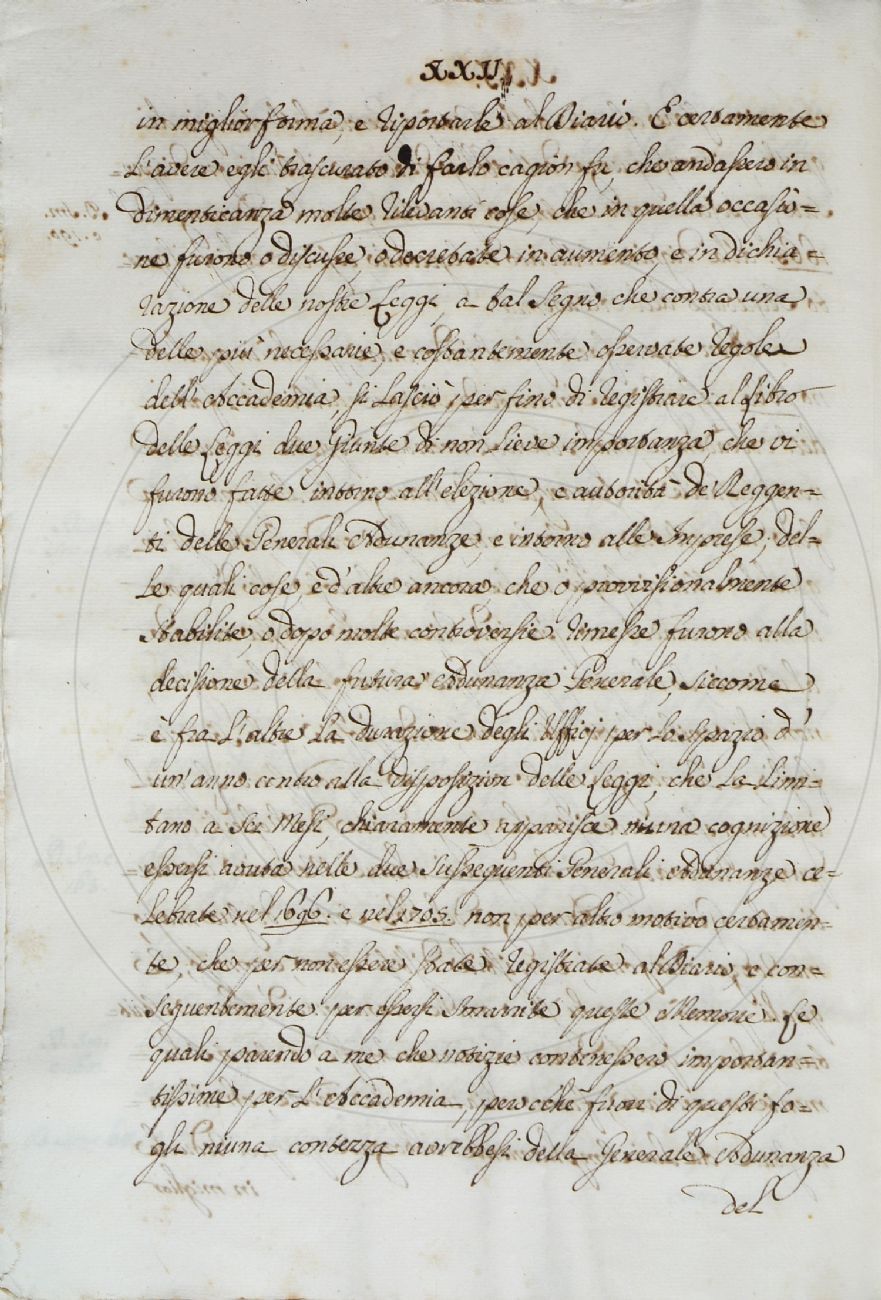 XXII
in miglior forma, e riportarle al Diario. E certamente
l'avere egli trascurato di farlo cagion fu, che andassero in
dimenticanza molte rilevanti cose, che in quella occasio=
ne furono o discusse, o decretate in aumento, e in dichia=
razione delle nostre Leggi, a tal segno che contra una
delle più necessarie, e costantemente osservate regole
dell'Accademia si lasciò per fino di registrare al Libro
delle Leggi due Giunte di non lieve importanza, che vi
furono fatte intorno all'elezione, e autorità de' Reggen=
ti delle Generali Adunanze, e intorno alle Imprese; del=
le quali cose, e d'altre ancora, che o provvisionalmente
stabilite, o dopo molte controversie rimesse furono alla
decisione della futura Adunanza Generale, siccome
è fra l'altre la durazione degli Ufficj per lo spazio d'
un'anno contro alla disposizion delle Leggi, che la limi=
tano a sei Mesi, chiaramente apparisce niuna cognizione
essersi avuta nelle due susseguenti Generali Adunanze ce=
lebrate nel 1696. e nel 1705. non per altro motivo certamen=
te, che per non essere state registrate al Diario, e con=
seguentemente per essersi smarrite queste Memorie. Le
quali parendo a me che notizie contenessero importan=
tissime per l'Accademia, perocchè fuori di questi fo=
gli niuna contezza avrebbesi della Generale Adunanza
del